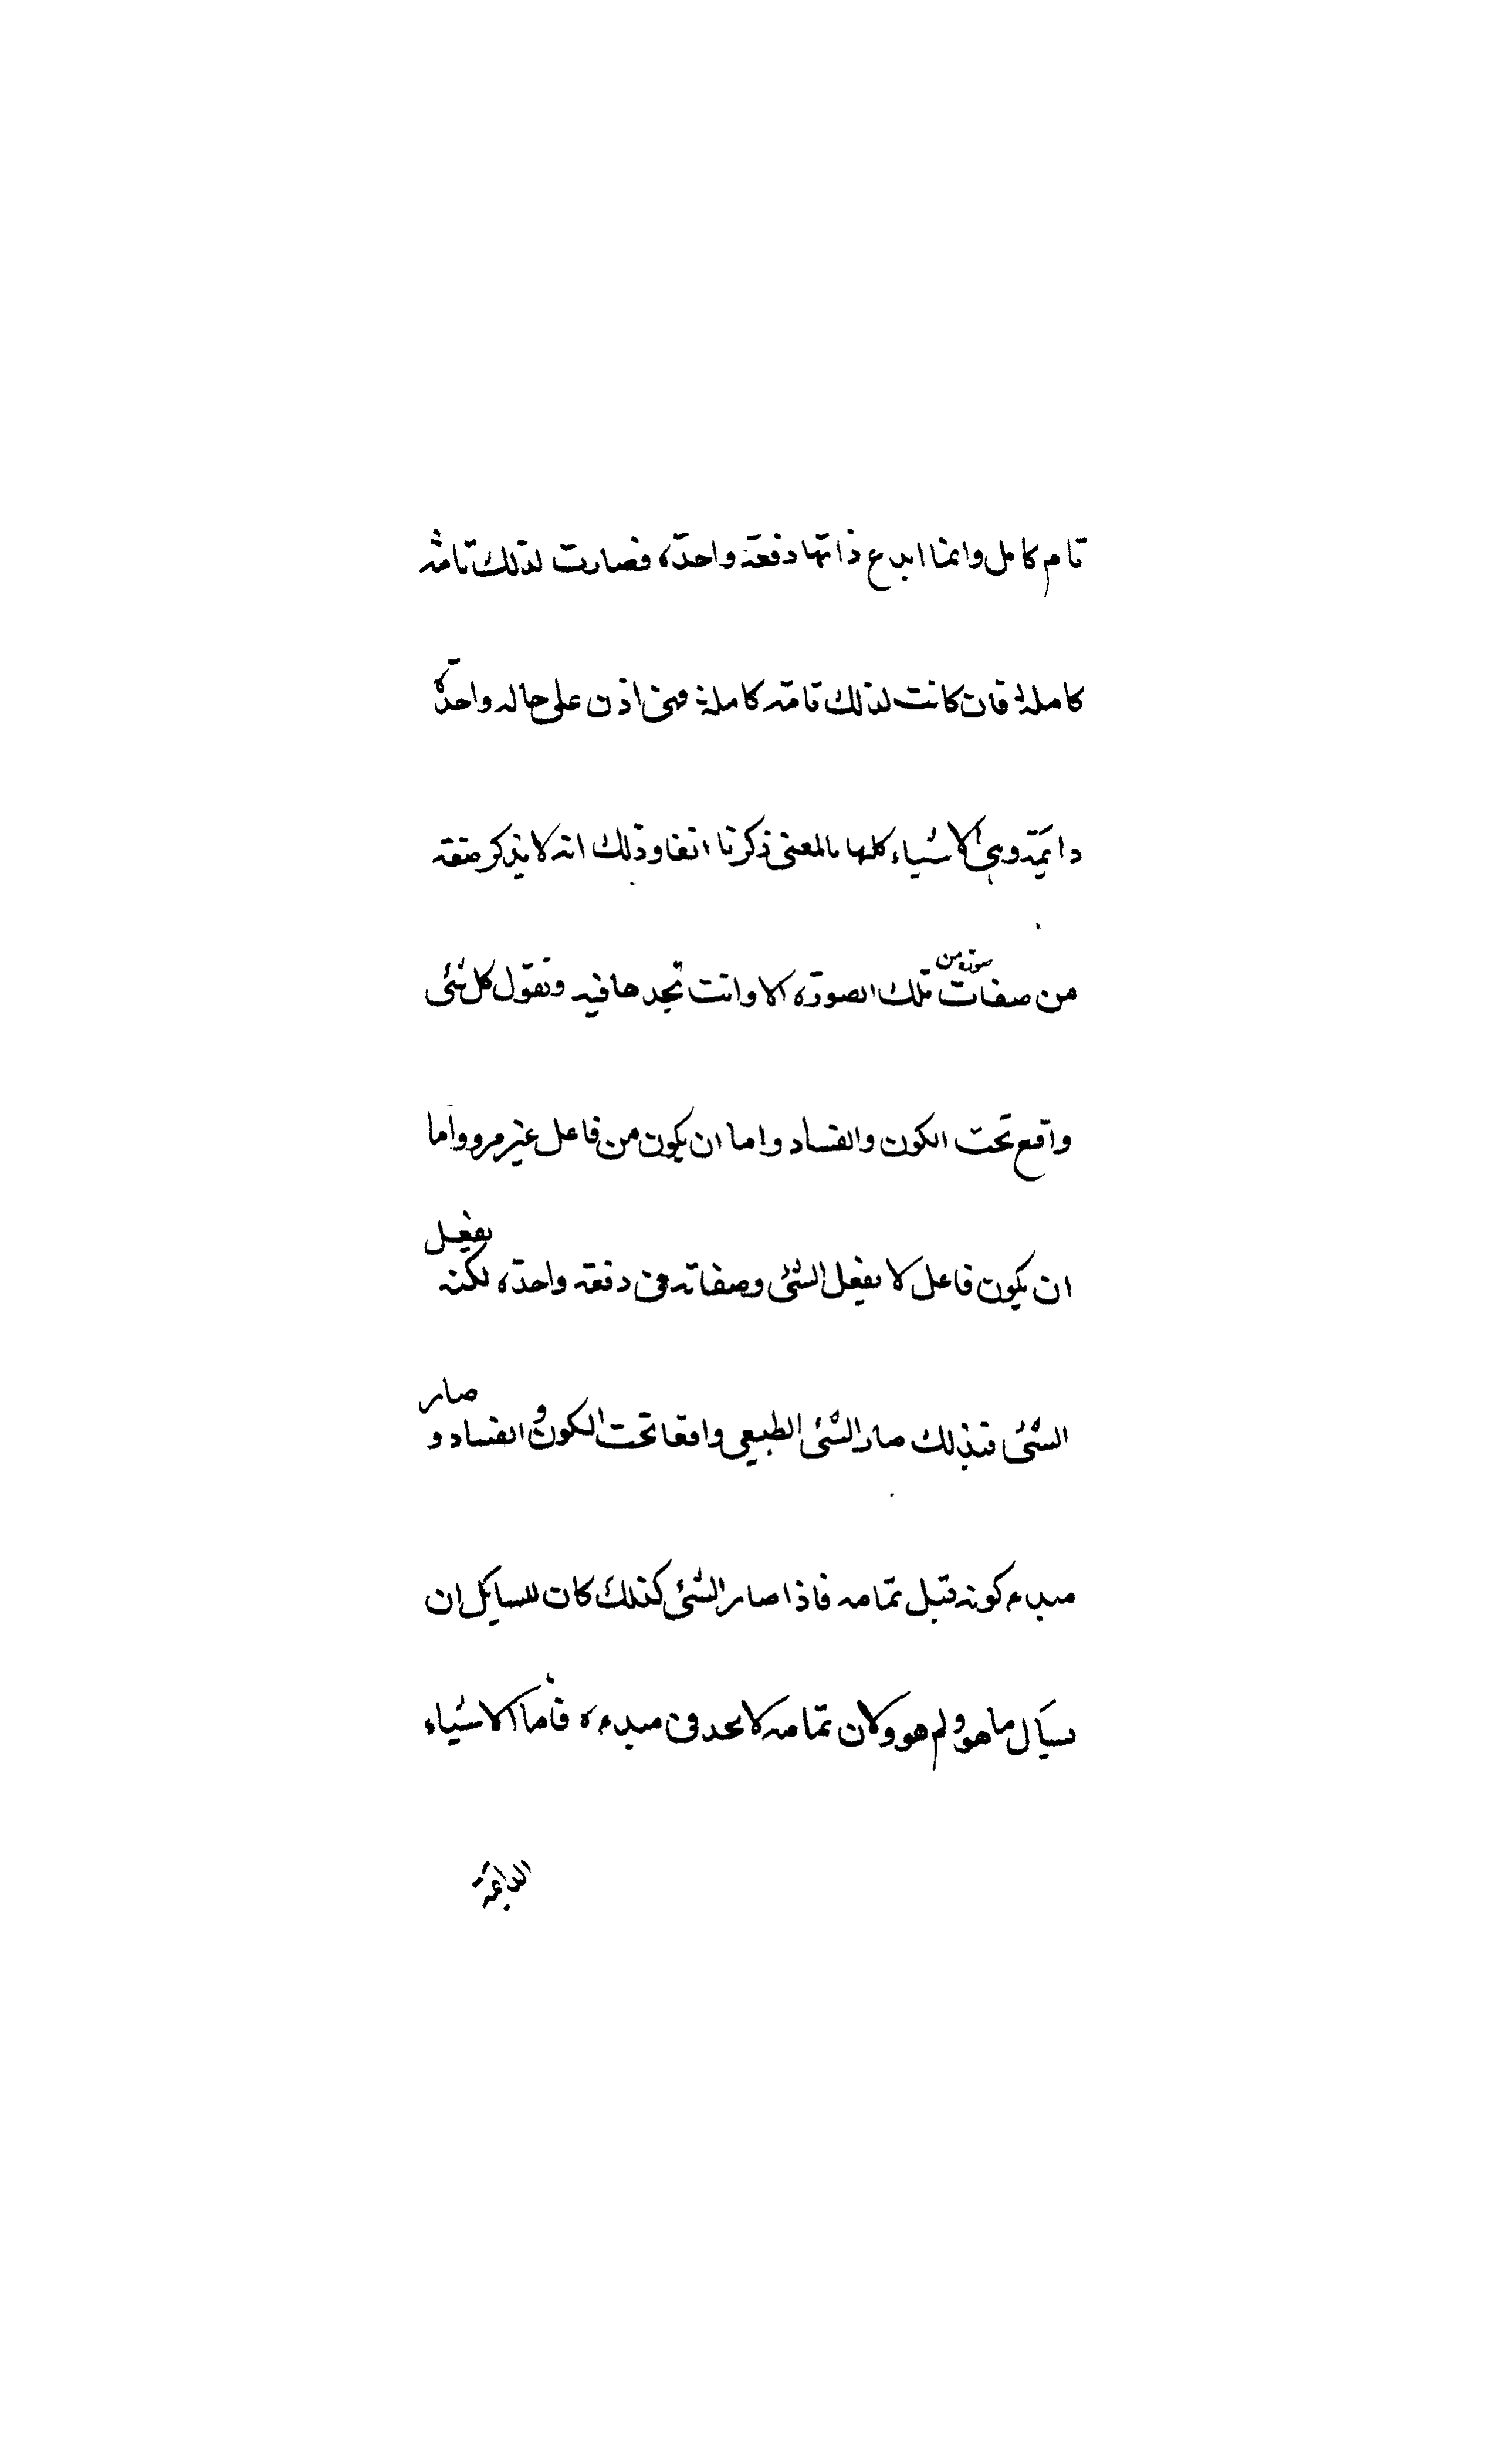 تام كامل وانما ابدع ذاتها دفعة واحدة فصارت لذلك تامة
كاملة فان كانت لذلك تامة كاملة فهى اذن على حاله واحدة
دايمة وهى الاشياء كلها بالمعنى ذكرنا انفا وذلك انه لا يذكر صفة
صورة من
من صفات تلك الصورة الا وانت تجدها فيه ونقول كل شئ
واقع تحت الكون والفساد واما ان يكون من فاعل غير مرو واما
ان يكون فاعل لا يفعل الشئ وصفاته فى دفعة واحدة لكنه يفعل
الشئ فبذلك صار الشئ الطبيعى واقعا تحت الكون و الفساد و صار
مبدء كونه قبل تمامه فاذا صار الشئ كذلك كان للسايل ان
يسال ما هو ولم هو ولان تمامه لا يجد فى مبدءه فاما الاشياء
الدايمة